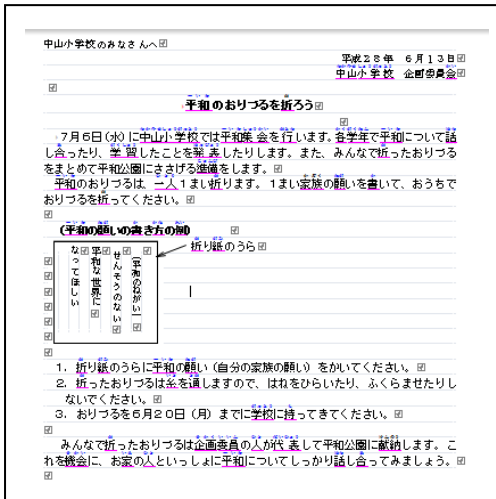 中山小学校のみなさんへ
平成28年 6月13日
中山小学校 企画委員会
平和のおりづるを折ろう
7月6日(水)に中山小学校では平和集会を行います。各学年で平和について話
し合ったり、学習したことを発表したりします。また、みんなで折ったおりづる
をまとめて平和公園にささげる準備をします。
平和のおりづるは、一人1まい折ります。1まい家族の願いを書いて、おうちで
おりづるを折ってください。
(平和の願いの書き方の例)
折り紙のうら
(平和のねがい)
せんそうのない
平和な世界に
なってほしい
1. 折り紙のうらに平和の願い(自分の家族の願い)をかいてください。
2. 折ったおりづるは糸を通しますので、はねをひらいたり、ふくらませたりし
ないでください。
3. おりづるを6月20日(月)までに学校に持ってきてください。
みんなで折ったおりづるは企画委員の人が代表して平和公園に献納します。こ
れを機会に、お家の人といっしょに平和についてしっかり話し合ってみましょう。